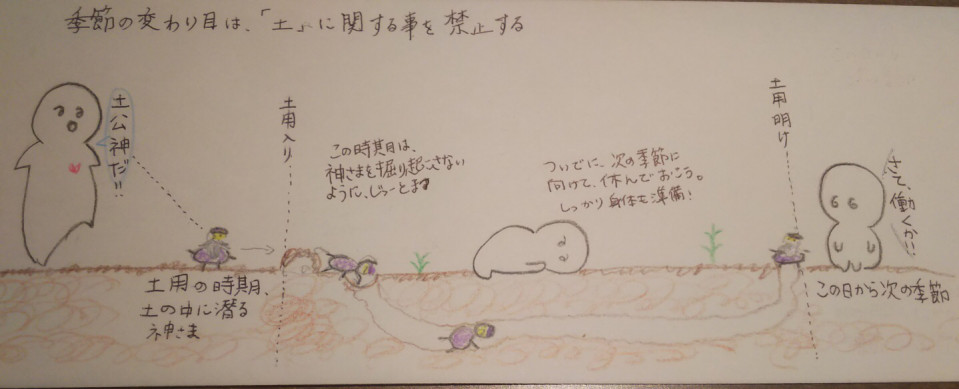 季節の変わり目は、「土」に関する事を禁止する
土公神だ!!
土用入り
この時期は、
神さまを掘り起こさない
ように、じっーとまつ
ついでに、次の季節に
向けて、休んでおこう。
しっかり身体も準備!
土用明け
さて、働くかい
土用の時期、
土の中に潜る
神さま
この日から次の季節